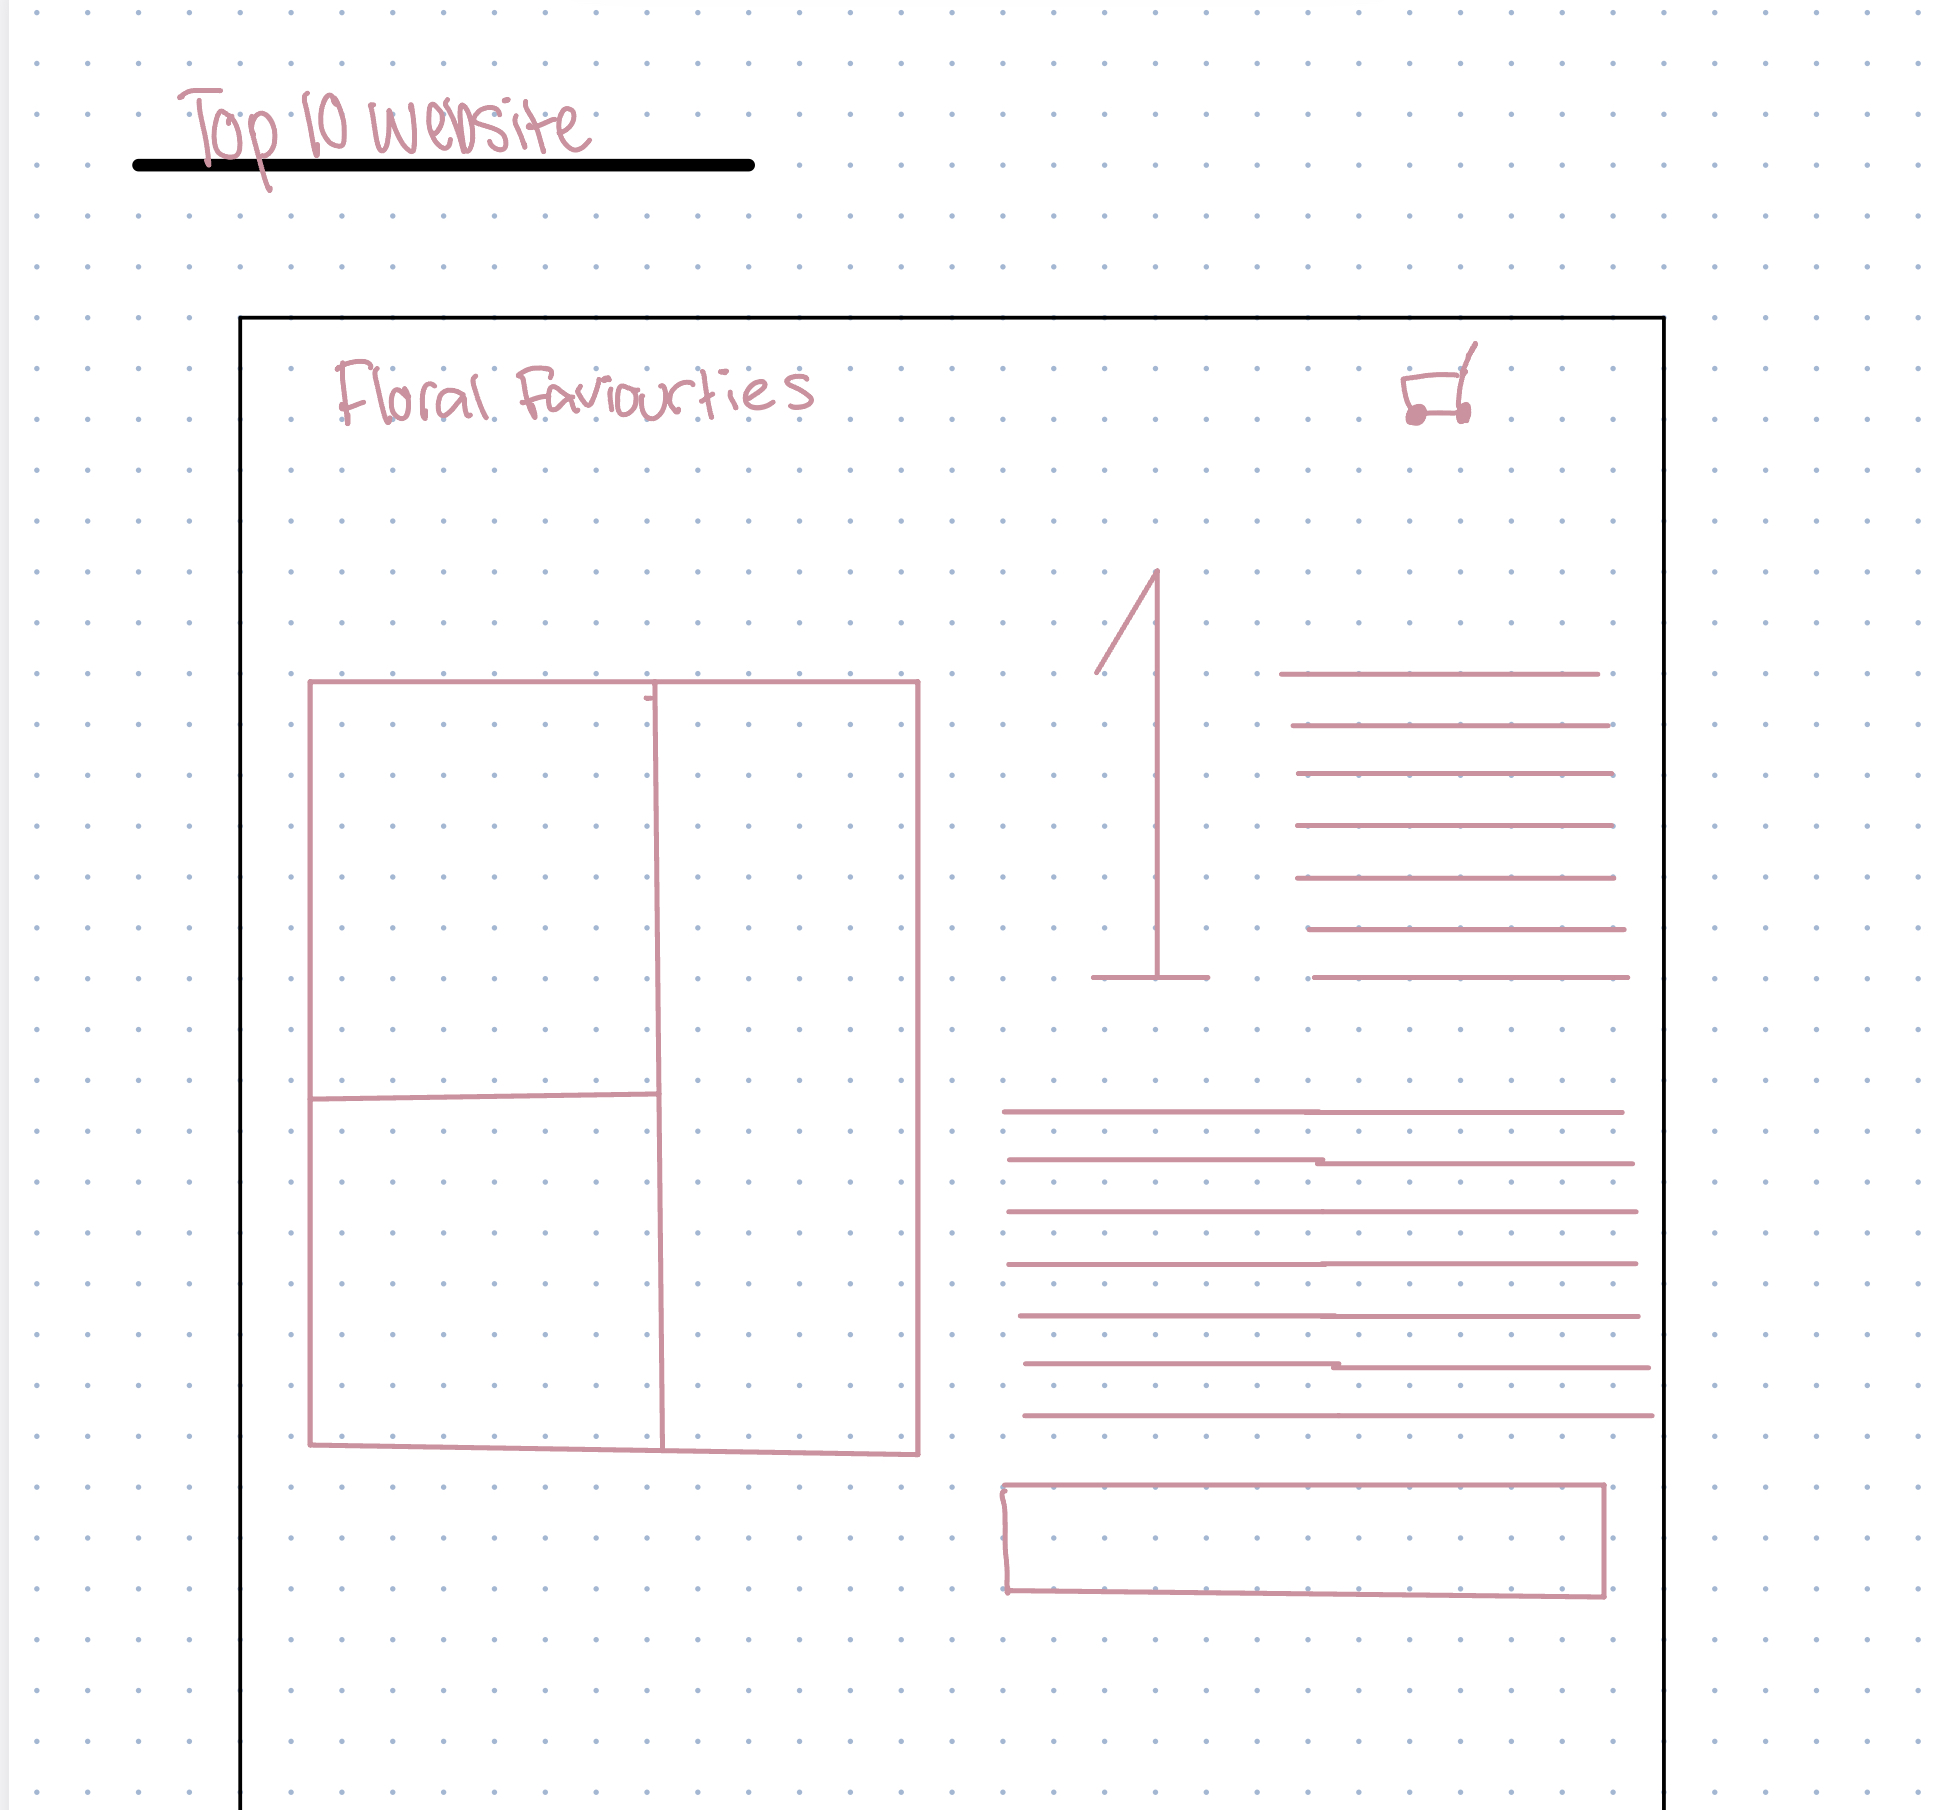 Top 10 website
Floral Faviourties
1